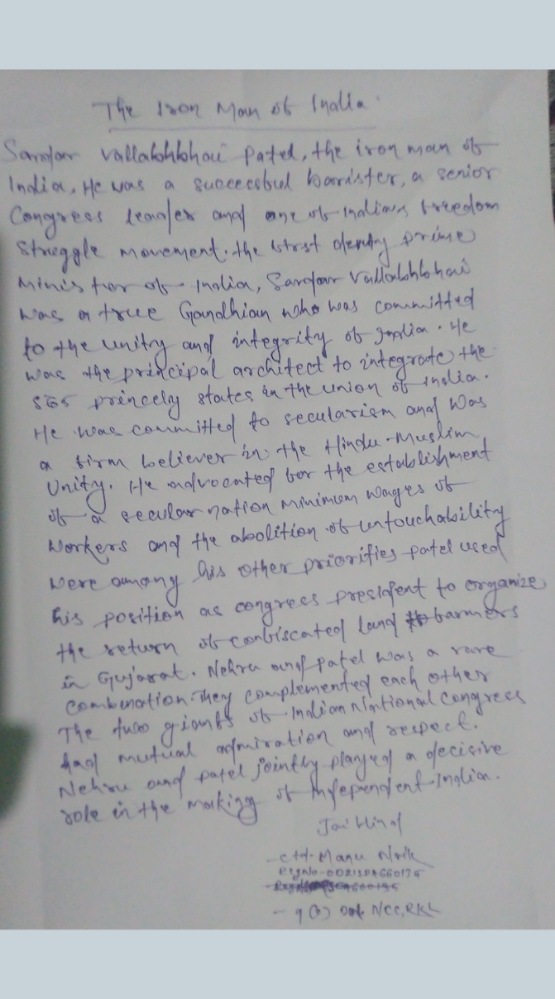 The Iron Man of India
Sardar Vallabhbhai Patel, the iron man of
India, He was a successful barister, a senior
Congress leader and one of Indians freedom
struggle movement. the first deputy prime
minister of India, Sardar Vallabhbhai
was a true Gandhian who was committed
to the unity and integrity of India. He
was the principal architect to integrate the
565 princely states in the union of India.
He was committed to secularism and was
a firm believer in the Hindu-Muslim
Unity. He advocated for the establishment
of a secular nation minimum wages of
workers and the abolition of untouchability
were among his other priorities patel used
his position as congress president to organize
the return of confiscated land farmers
in Gujarat. Nehru and patel was a rare
combination They complemented each other
The two giants of Indian National Congress
had mutual admiration and respect.
Nehru and patel jointly played a decisive
role in the making of Independent India.
Jai Hind
- cdt. Manu
Regno-
- 9 NCC, RKL